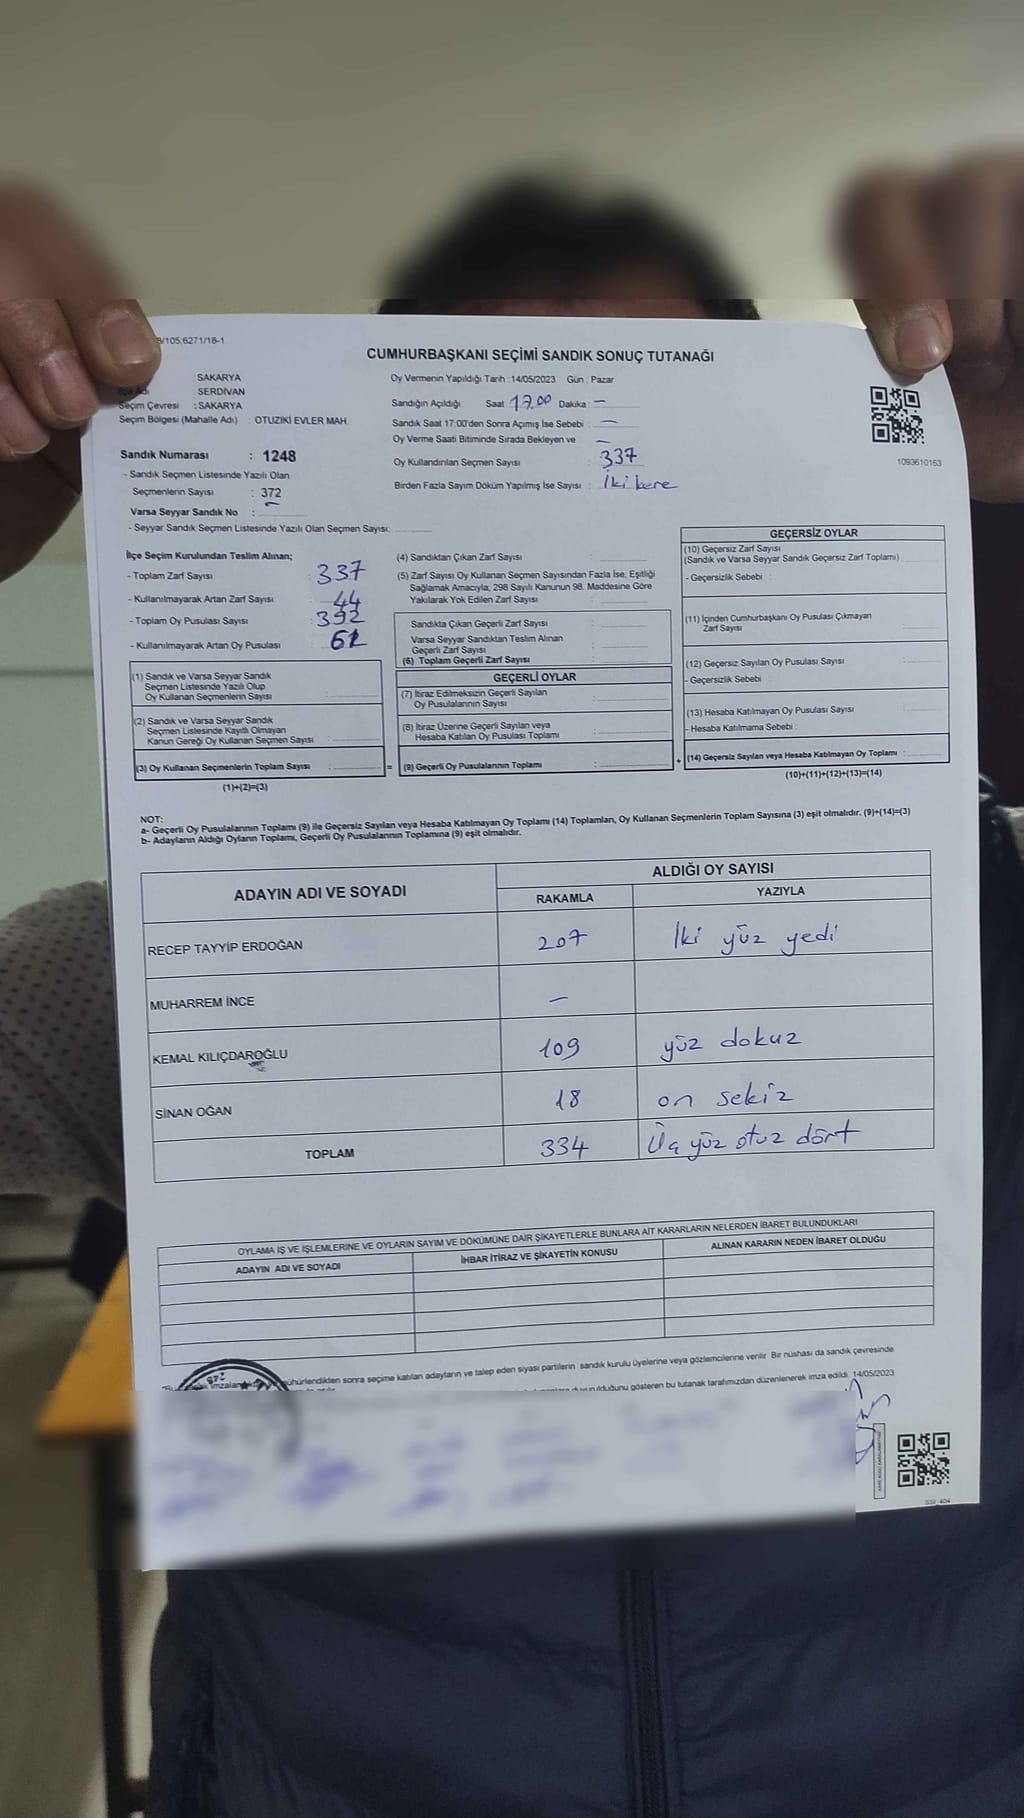 /105.6271/18-1
CUMHURBAŞKANI SEÇİMİ SANDIK SONUÇ TUTANAĞI
: SAKARYA
: SERDİVAN
Seçim Çevresi : SAKARYA
Seçim Bölgesi (Mahalle Adı) : OTUZİKİ EVLER MAH.
Oy Vermenin Yapıldığı Tarih :14/05/2023 Gün : Pazar
Sandığın Açıldığı Saat 17.00 Dakika : —
Sandık Saat 17:00'den Sonra Açımış İse Sebebi : —
Oy Verme Saati Bitiminde Sırada Bekleyen ve —
Oy Kullandırılan Seçmen Sayısı : 337
Birden Fazla Sayım Döküm Yapılmış İse Sayısı : İki kere
1093610163
Sandık Numarası : 1248
- Sandık Seçmen Listesinde Yazılı Olan
Seçmenlerin Sayısı : 372
Varsa Seyyar Sandık No : —
- Seyyar Sandık Seçmen Listesinde Yazılı Olan Seçmen Sayısı:
İlçe Seçim Kurulundan Teslim Alınan;
- Toplam Zarf Sayısı : 337
- Kullanılmayarak Artan Zarf Sayısı : 44
- Toplam Oy Pusulası Sayısı : 392
- Kullanılmayarak Artan Oy Pusulası :
(1) Sandık ve Varsa Seyyar Sandık
Seçmen Listesinde Yazılı Olup
Oy Kullanan Seçmenlerin Sayısı :
(2) Sandık ve Varsa Seyyar Sandık
Seçmen Listesinde Kayıtlı Olmayan
Kanun Gereği Oy Kullanan Seçmen Sayısı :
(3) Oy Kullanan Seçmenlerin Toplam Sayısı :
(1)+(2)=(3)
=
(4) Sandıktan Çıkan Zarf Sayısı :
(5) Zarf Sayısı Oy Kullanan Seçmen Sayısından Fazla İse, Eşitliği
Sağlamak Amacıyla, 298 Sayılı Kanunun 98. Maddesine Göre
Yakılarak Yok Edilen Zarf Sayısı :
Sandıkta Çıkan Geçerli Zarf Sayısı :
Varsa Seyyar Sandıktan Teslim Alınan
Geçerli Zarf Sayısı :
(6) Toplam Geçerli Zarf Sayısı :
GEÇERLİ OYLAR
(7) İtiraz Edilmeksizin Geçerli Sayılan
Oy Pusulalarının Sayısı :
(8) İtiraz Üzerine Geçerli Sayılan veya
Hesaba Katılan Oy Pusulası Toplamı :
(9) Geçerli Oy Pusulalarının Toplamı :
+
GEÇERSİZ OYLAR
(10) Geçersiz Zarf Sayısı
(Sandık ve Varsa Seyyar Sandık Geçersiz Zarf Toplamı) :
- Geçersizlik Sebebi :
(11) İçinden Cumhurbaşkanı Oy Pusulası Çıkmayan
Zarf Sayısı :
(12) Geçersiz Sayılan Oy Pusulası Sayısı :
- Geçersizlik Sebebi :
(13) Hesaba Katılmayan Oy Pusulası Sayısı :
- Hesaba Katılmama Sebebi :
(14) Geçersiz Sayılan veya Hesaba Katılmayan Oy Toplamı :
(10)+(11)+(12)+(13)=(14)
NOT:
a- Geçerli Oy Pusulalarının Toplamı (9) ile Geçersiz Sayılan veya Hesaba Katılmayan Oy Toplamı (14) Toplamları, Oy Kullanan Seçmenlerin Toplam Sayısına (3) eşit olmalıdır. (9)+(14)=(3)
b- Adayların Aldığı Oyların Toplamı, Geçerli Oy Pusulalarının Toplamına (9) eşit olmalıdır.
ADAYIN ADI VE SOYADI ALDIĞI OY SAYISI
RAKAMLA YAZIYLA
RECEP TAYYİP ERDOĞAN 207 İki yüz yedi
MUHARREM İNCE —
KEMAL KILIÇDAROĞLU 109 yüz dokuz
SİNAN OĞAN 18 on sekiz
TOPLAM 334 Üç yüz otuz dört
OYLAMA İŞ VE İŞLEMLERİNE VE OYLARIN SAYIM VE DÖKÜMÜNE DAİR ŞİKAYETLERLE BUNLARA AİT KARARLARIN NELERDEN İBARET BULUNDUKLARI
ADAYIN ADI VE SOYADI İHBAR İTİRAZ VE ŞİKAYETİN KONUSU ALINAN KARARIN NEDEN İBARET OLDUĞU
mühürlendikten sonra seçime katılan adayların ve talep eden siyasi partilerin sandık kurulu üyelerine veya gözlemcilerine verilir. Bir nüshası da sandık çevresinde
gösteren bu tutanak tarafımızdan düzenlenerek imza edildi. 14/05/2023